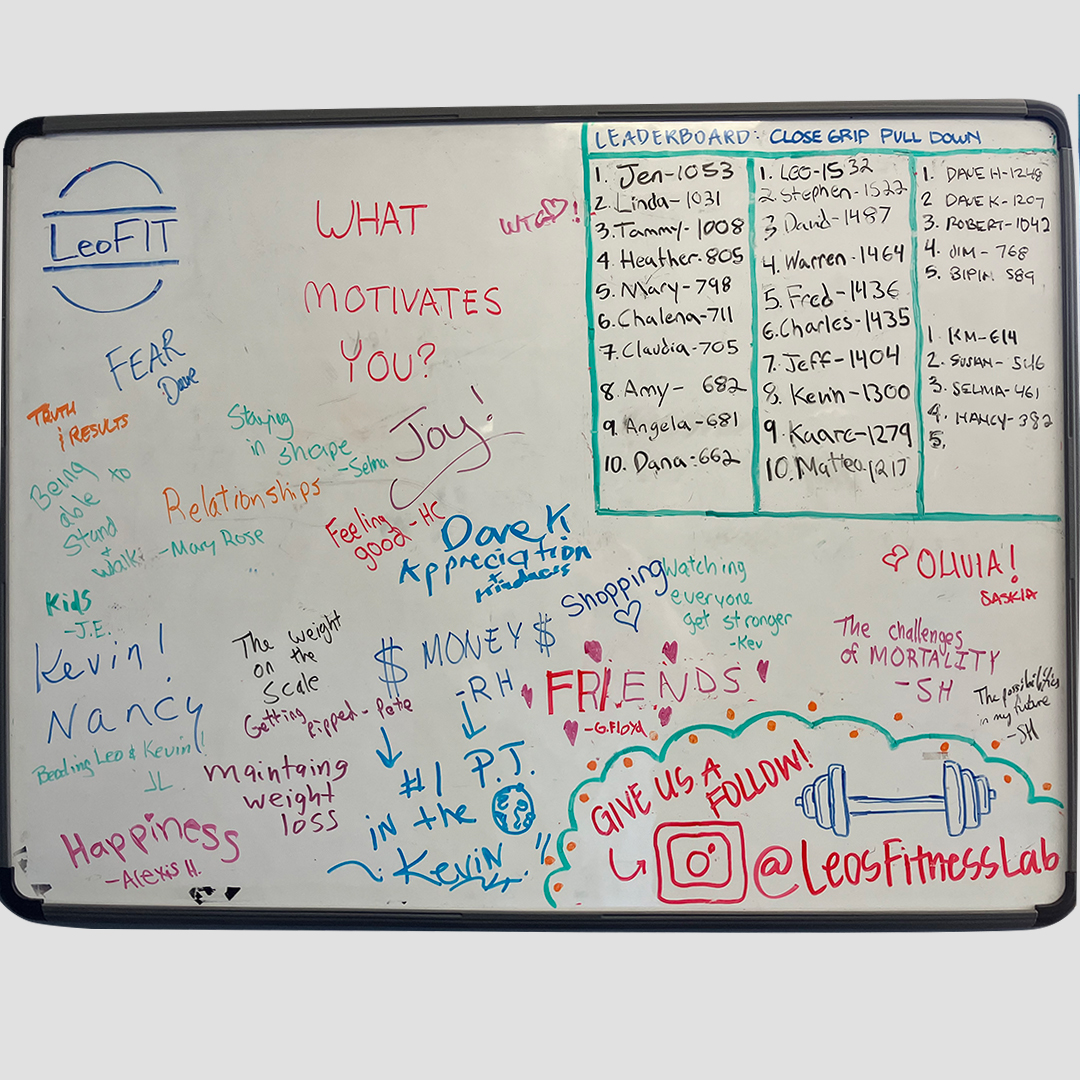 LeoFIT
WHAT
MOTIVATES
YOU?
WTG!
FEAR
Dave
TRUTH
& RESULTS
Staying
in shape
-Selma
Joy!
Being
able to
Stand
+
walk
Relationships
-Mary Rose
Feeling
good - HC
Dave K
Appreciation
+
Kindness
Kids
-J.E.
Kevin!
Nancy
Beating Leo & Kevin!
JL
The weight
on the
Scale
Getting Ripped - Pete
maintaing
weight
loss
Happiness
-Alexis H.
$ MONEY $
-RH
#1 P.J.
in the
Kevin
Shopping
Watching
everyone
get stronger
-Kev
FRIENDS
-G.Floyd
OLIVIA!
SASKIA
The challenges
of MORTALITY
-SH
The possibilities
in my future
-SH
LEADERBOARD: CLOSE GRIP PULL DOWN
1. Jen-1053
2. Linda-1031
3. Tammy-1008
4. Heather-805
5. Mary-798
6. Chalena-711
7. Claudia-705
8. Amy- 682
9. Angela-681
10. Dana:662
1. LEO-1532
2 Stephen-1522
3 David-1487
4. Warren-1464
5. Fred-1436
6. Charles-1435
7. Jeff-1404
8. Kevin-1300
9 Kaarc-1279
10. Matteo.1217
1. DAVE H-1248
2 DAVE K-1207
3. ROBERT-1042
4. JIM-768
5. BIPIN 589
1. KM-614
2. SUSAN-546
3. SELMA-461
4. NANCY-382
5.
GIVE US A
FOLLOW!
@LeosFitnessLab